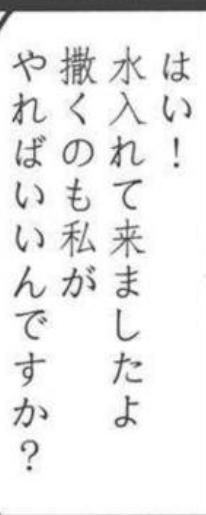 はい！
水入れて来ましたよ
撒くのも私が
やればいいんですか？